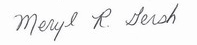 Meryl R. Gersh